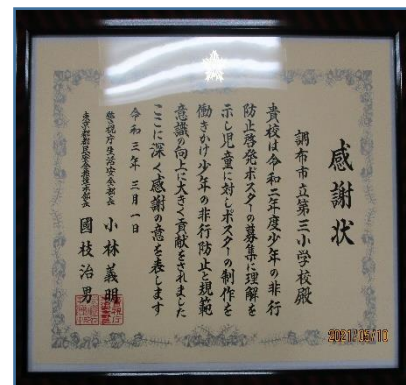 感謝状
調布市立第三小学校殿
貴校は令和二年度少年の非行
防止啓発ポスターの募集に理解を
示し児童に対しポスターの制作を
働きかけ少年の非行防止と規範
意識の向上に大きく貢献をされました
ここに深く感謝の意を表します
令和三年三月一日
警視庁生活安全部長 小林義明
國枝治男
2021/05/10